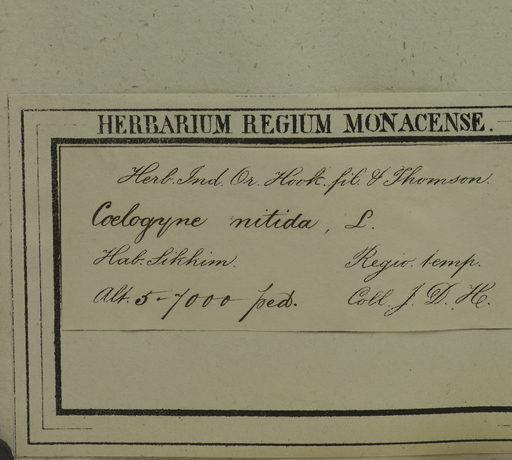 HERBARIUM REGIUM MONACENSE.
Herb. Ind. Or. Hook. fil. & Thomson.
Coelogyne nitida, L.
Hab. Sikkim. Regio. temp.
Alt. 5-7000 ped. Coll. J. D. H.